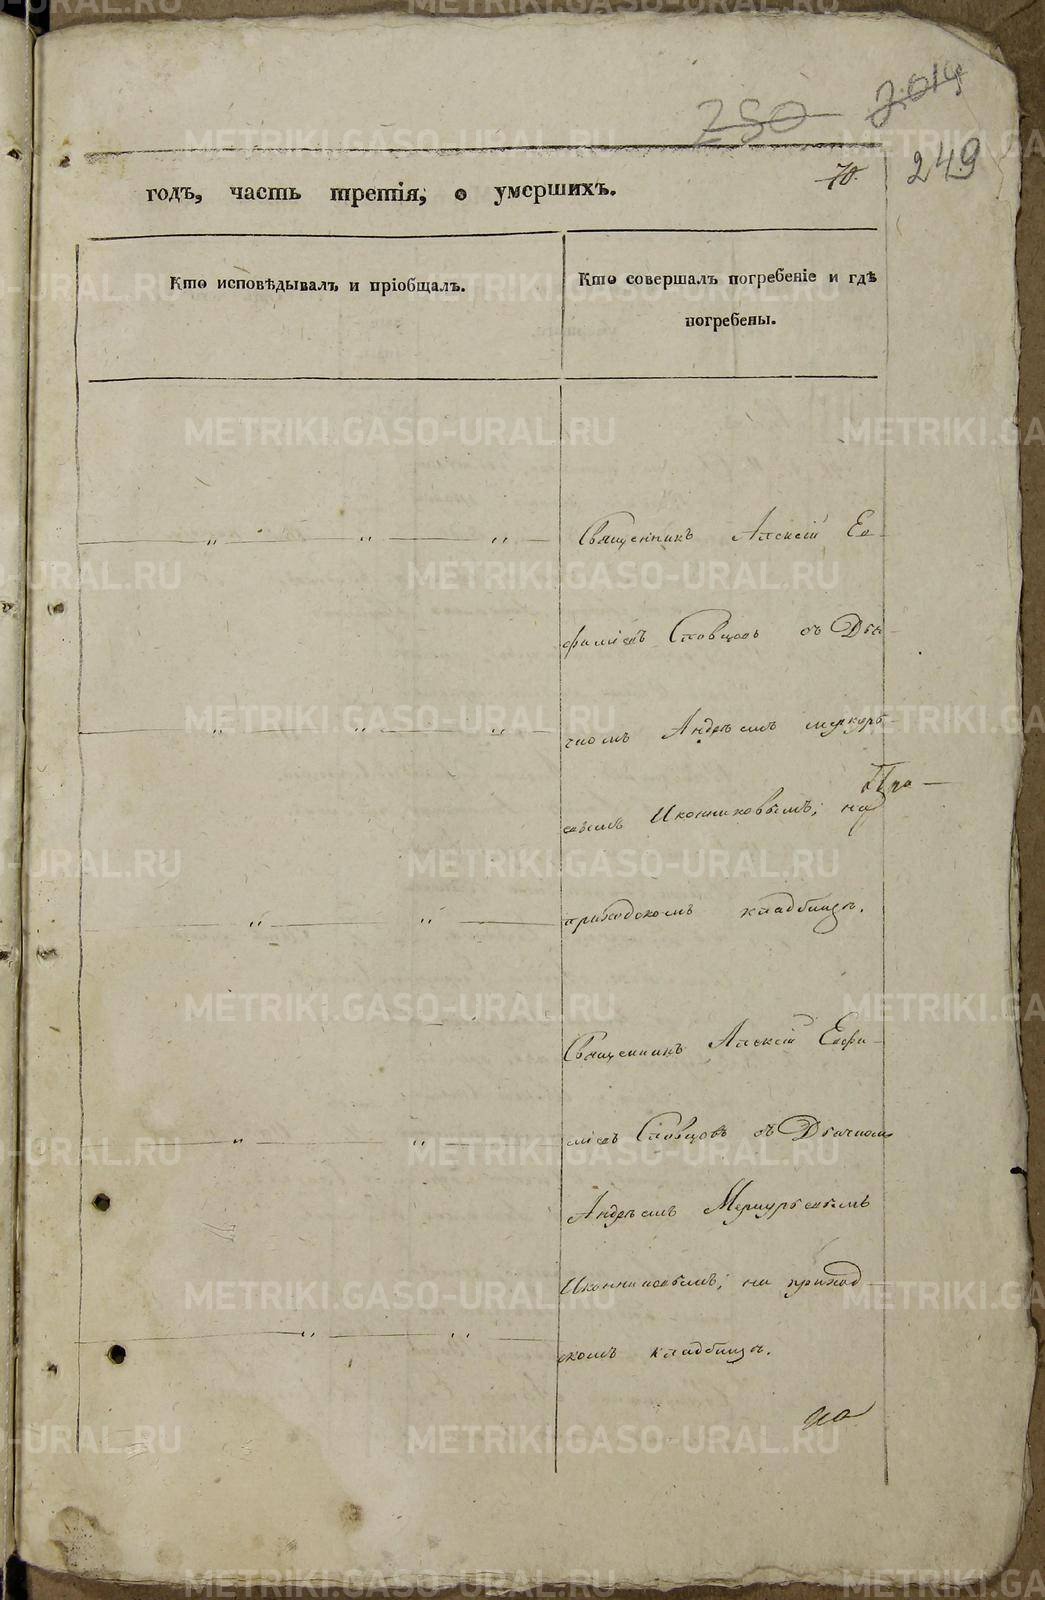 250 2014
249
70.
годъ, часть третія, о умершихъ.
Кто исповѣдывалъ и пріобщалъ.
Кто совершалъ погребеніе и гдѣ
погребены.
Священникъ Алексій Ев-
фиміевъ Словцовъ съ Дья-
чкомъ Андреемъ меркурь-
евымъ Иконниковымъ; на
приходскомъ кладбищѣ.
Священникъ Алексій Евфи-
міевъ Словцовъ съ Дьячкомъ
Андреемъ Меркурьевымъ
Иконниковымъ; на приход-
скомъ кладбищѣ.
METRIKI.GASO-URAL.RU